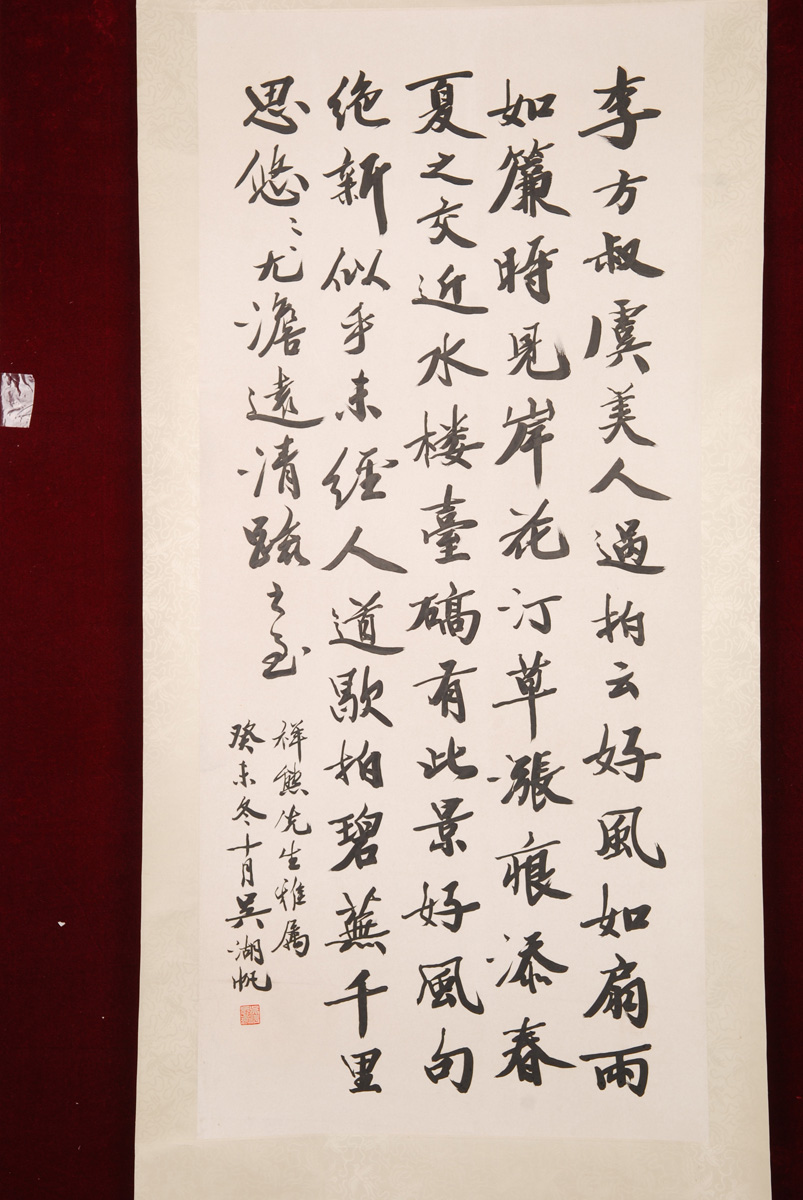 李方叔虞美人過拍云好風如扇雨
如簾時見岸花汀草漲痕添春
夏之交近水楼臺碻有此景好風句
绝新似乎未經人道歇拍碧蕪千里
思悠〻尤澹遠清踈之至
祥熊先生雅属
癸未冬十月吳湖帆